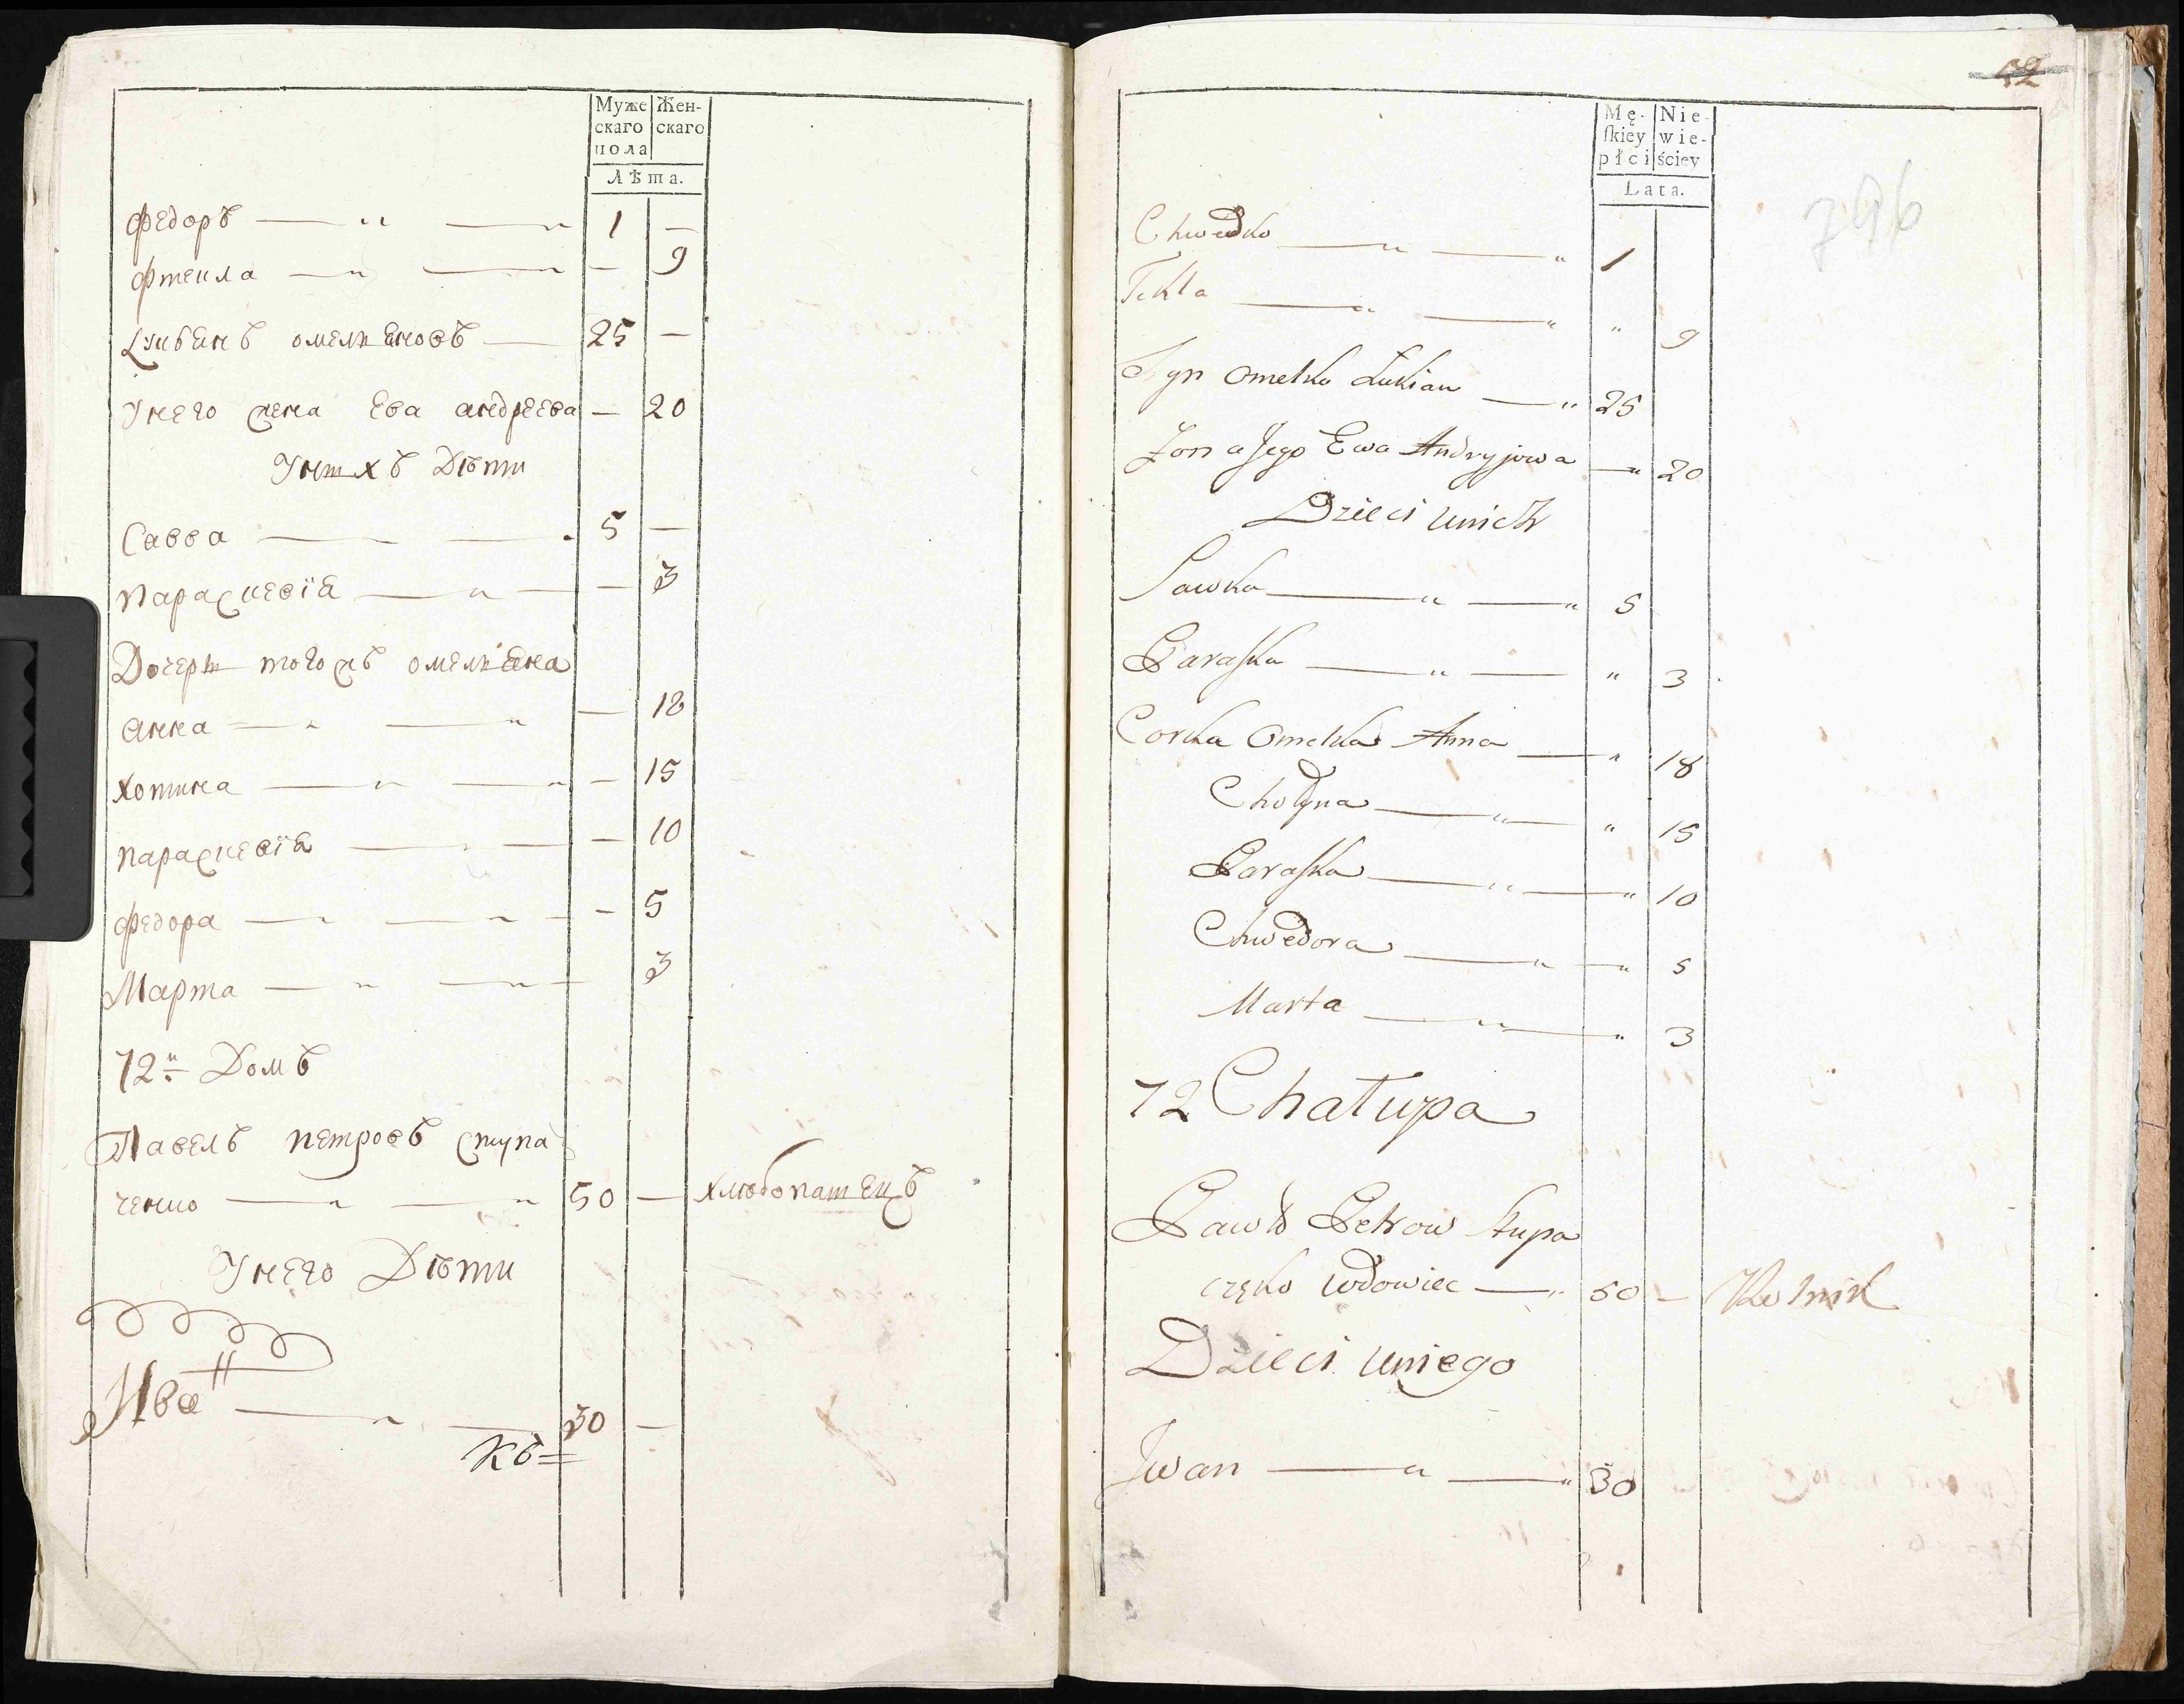 Муже Жен-
скаго скаго
пола
Лѣта.
Федоръ — „ — „ 1 —
Фтекла — „ — „ — 9
Лукьянъ омельяновъ — 25 —
У него жена Ева андреева — 20
У нихъ Дѣти
Савва — — . 5 —
параскевїя — „ — — 3
Дочери тогожъ омельяна
анна — „ — „ — 18
хотина — „ — „ — 15
параскевїя — „ — — 10
федора — „ — „ — — 5
Марта — „ — „ — 3
72й Домъ
Павелъ петровъ ступа
ченко — „ — „ 50 — хлѣбопашецъ
У него Дѣти
Иванъ — „ — 30 —
Къ=
42
796
Mę- Nie-
ſkiey wie-
płci ściey
Lata.
Chwedko — „ — „ 1
Tekla — „ — „ „ 9
Syn Omelka Łukian — „ 25
Zona Jego Ewa Andryjowa — „ 20
Dzieci unich
Sawka — „ — „ 5
Paraſka — „ — „ 3
Corka Omelka Anna — „ 18
Chotyna — „ — „ 15
Paraſka — „ — „ 10
Chwedora — „ — „ 5
Marta — „ — „ 3
72 Chałupa
Pawło Petrow Stupa
częko wdowiec — „ 50 — Rolnik
Dzieci uniego
Jwan — „ — „ 30